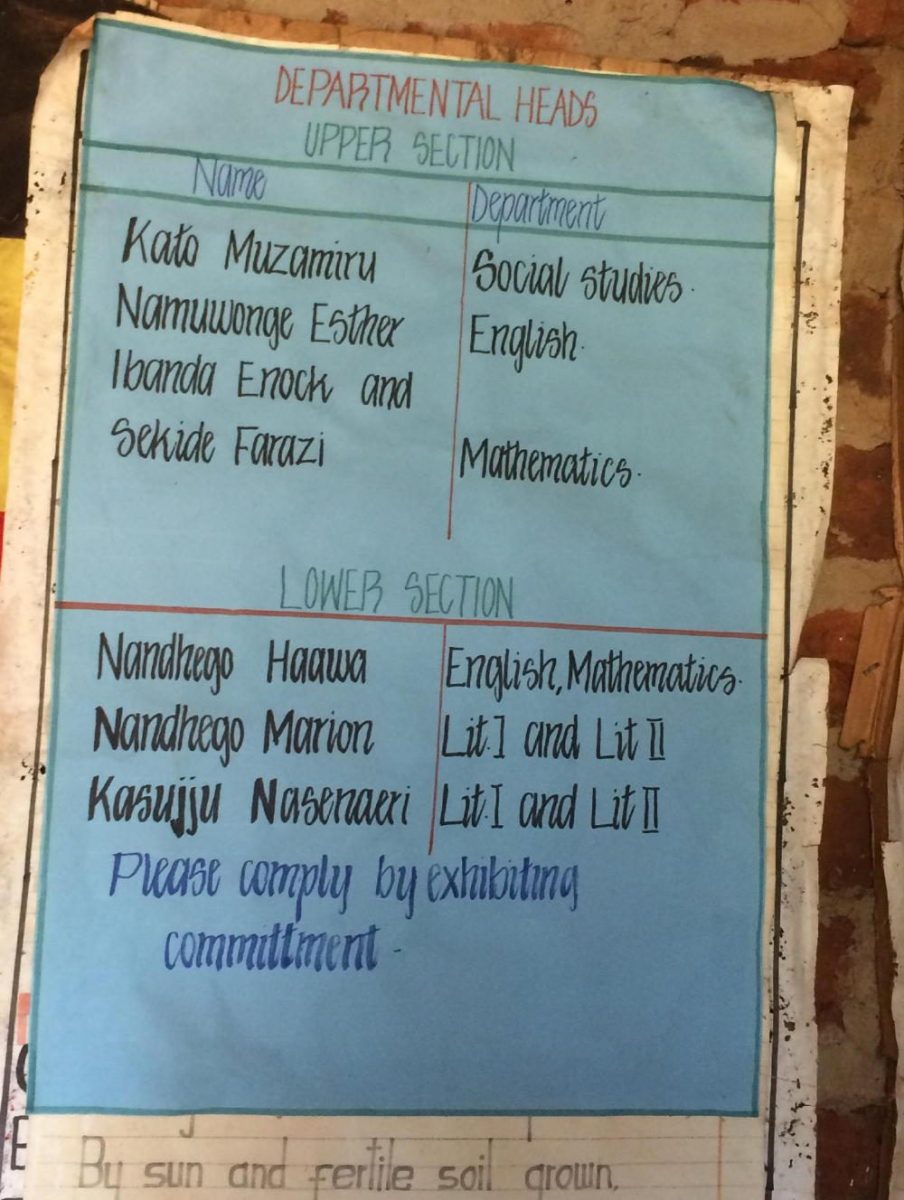 DEPARTMENTAL HEADS
UPPER SECTION
Name Department
Kato Muzamiru Social studies.
Namuwonge Esther English.
Ibanda Enock and
Sekide Farazi Mathematics.
LOWER SECTION
Nandhego Haawa English, Mathematics.
Nandhego Marion Lit.I and Lit II
Kasujju Nasenaeri Lit.I and Lit II
Please comply by exhibiting
committment -
By sun and fertile soil grown.